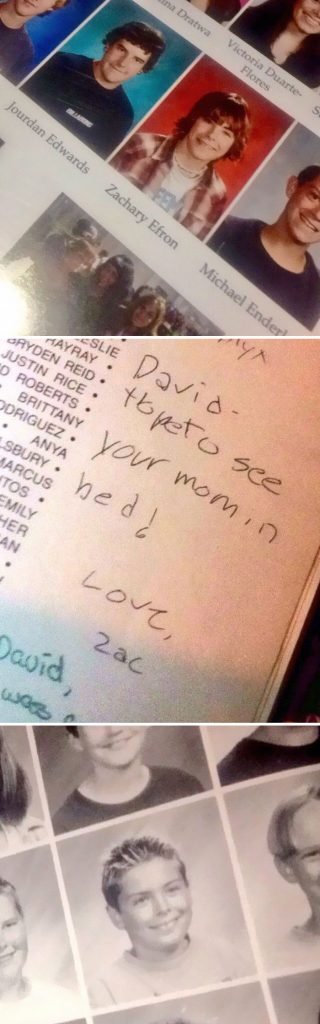 na Dratwa
Victoria Duarte-
Flores
Jourdan Edwards
Zachary Efron
Michael Enderl
LESLIE
HAYRAY •
BRYDEN REID •
JUSTIN RICE •
D ROBERTS •
BRITTANY
ODRIGUEZ •
ANYA
LSBURY •
MARCUS
TOS •
EMILY
HER
AN
David-
Hope to see
your mom in
bed!
Love,
Zac
David,